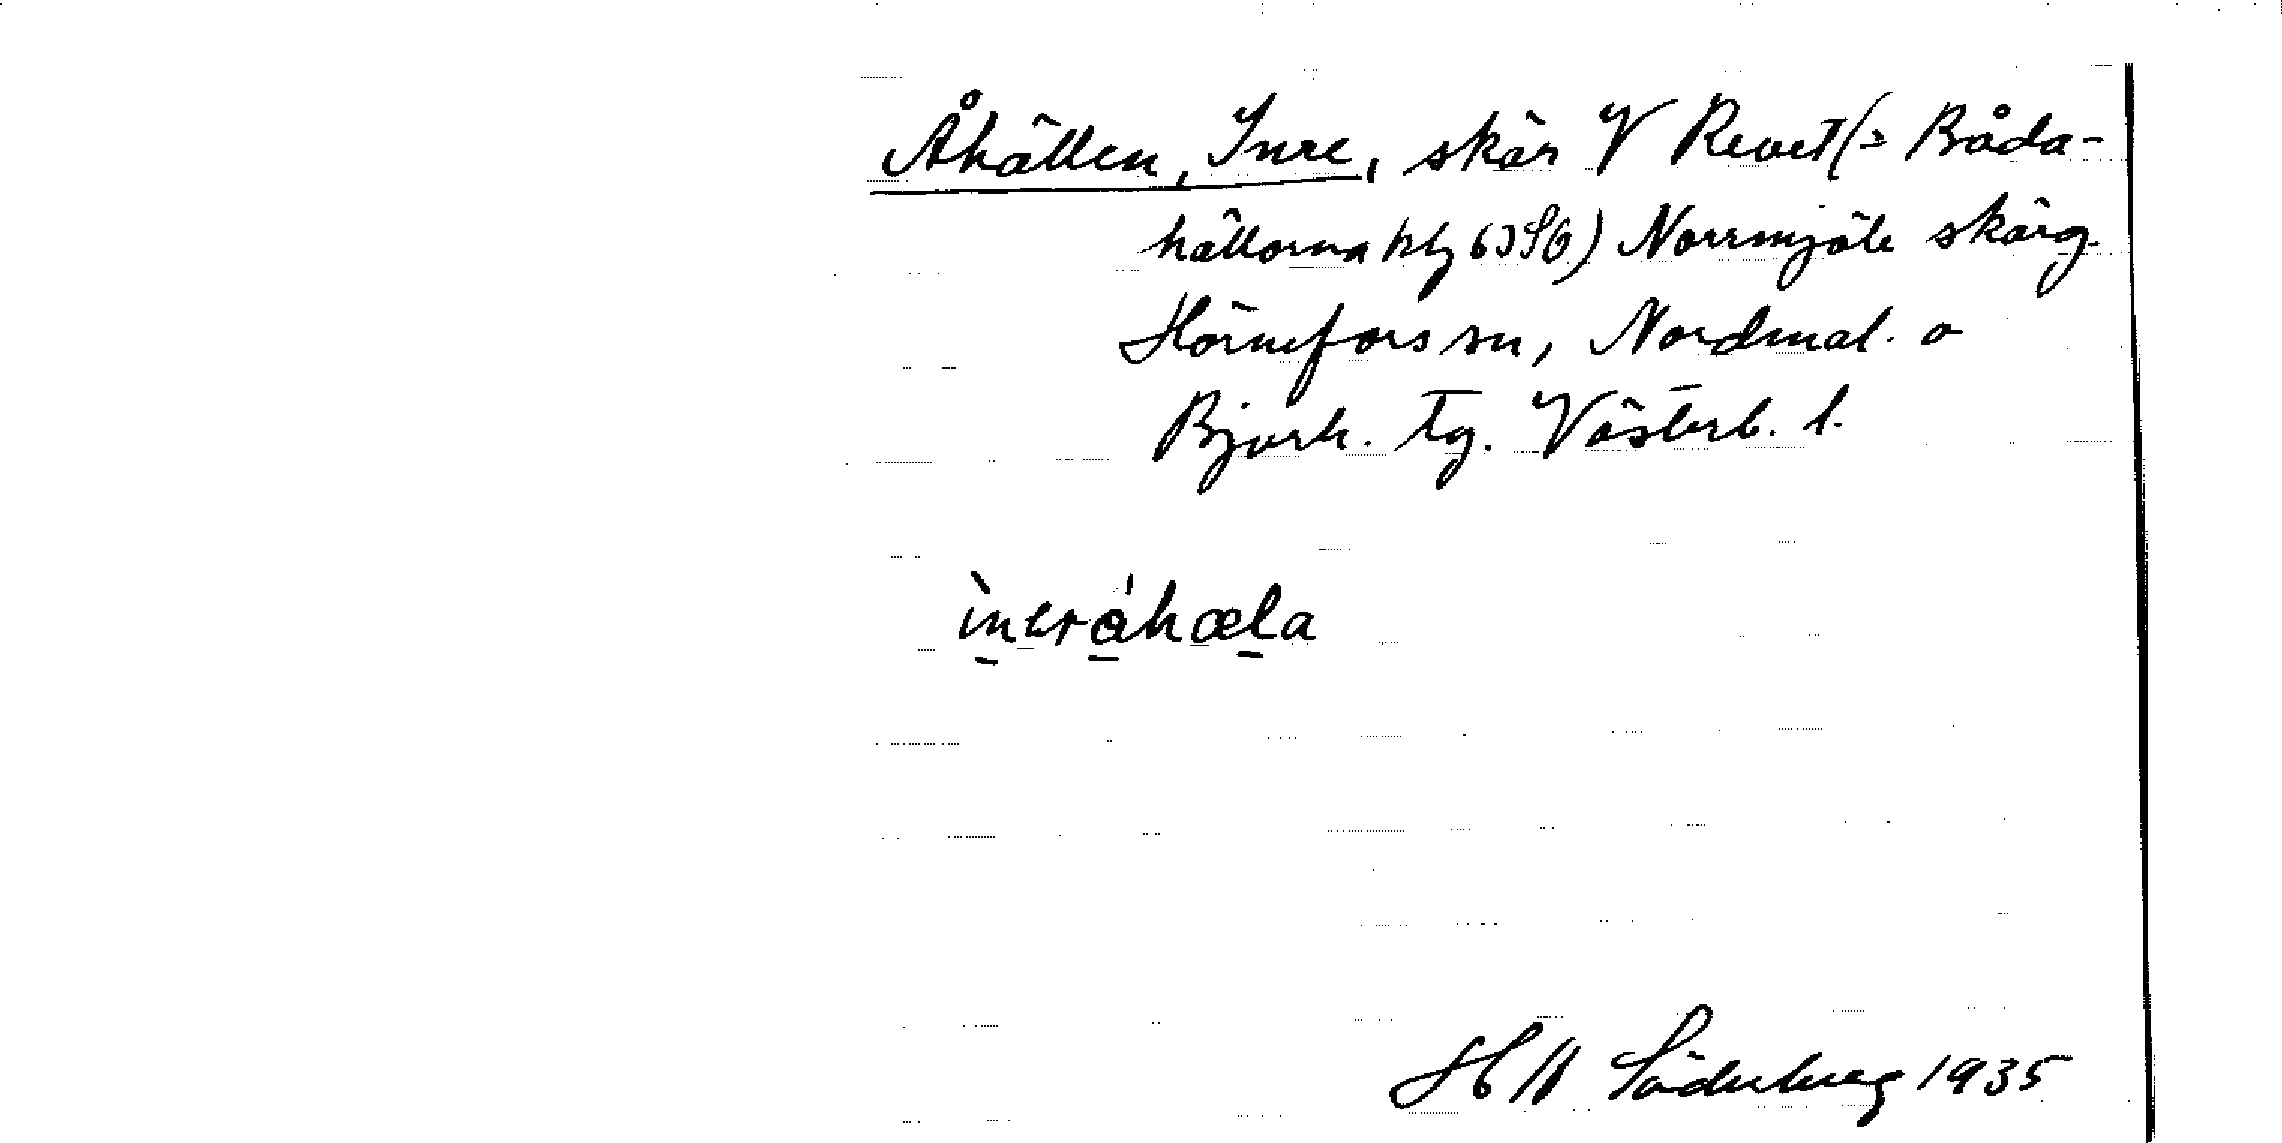 Åhällen, Inre, skär V Revet (= Båda-
hällorna blz 63 SO) Norrmjöle skärg.
Hörnefors sn, Nordmal. o
Bjurh. tg. Västerb. l.
ìnerǻhæla
H W Söderberg 1935